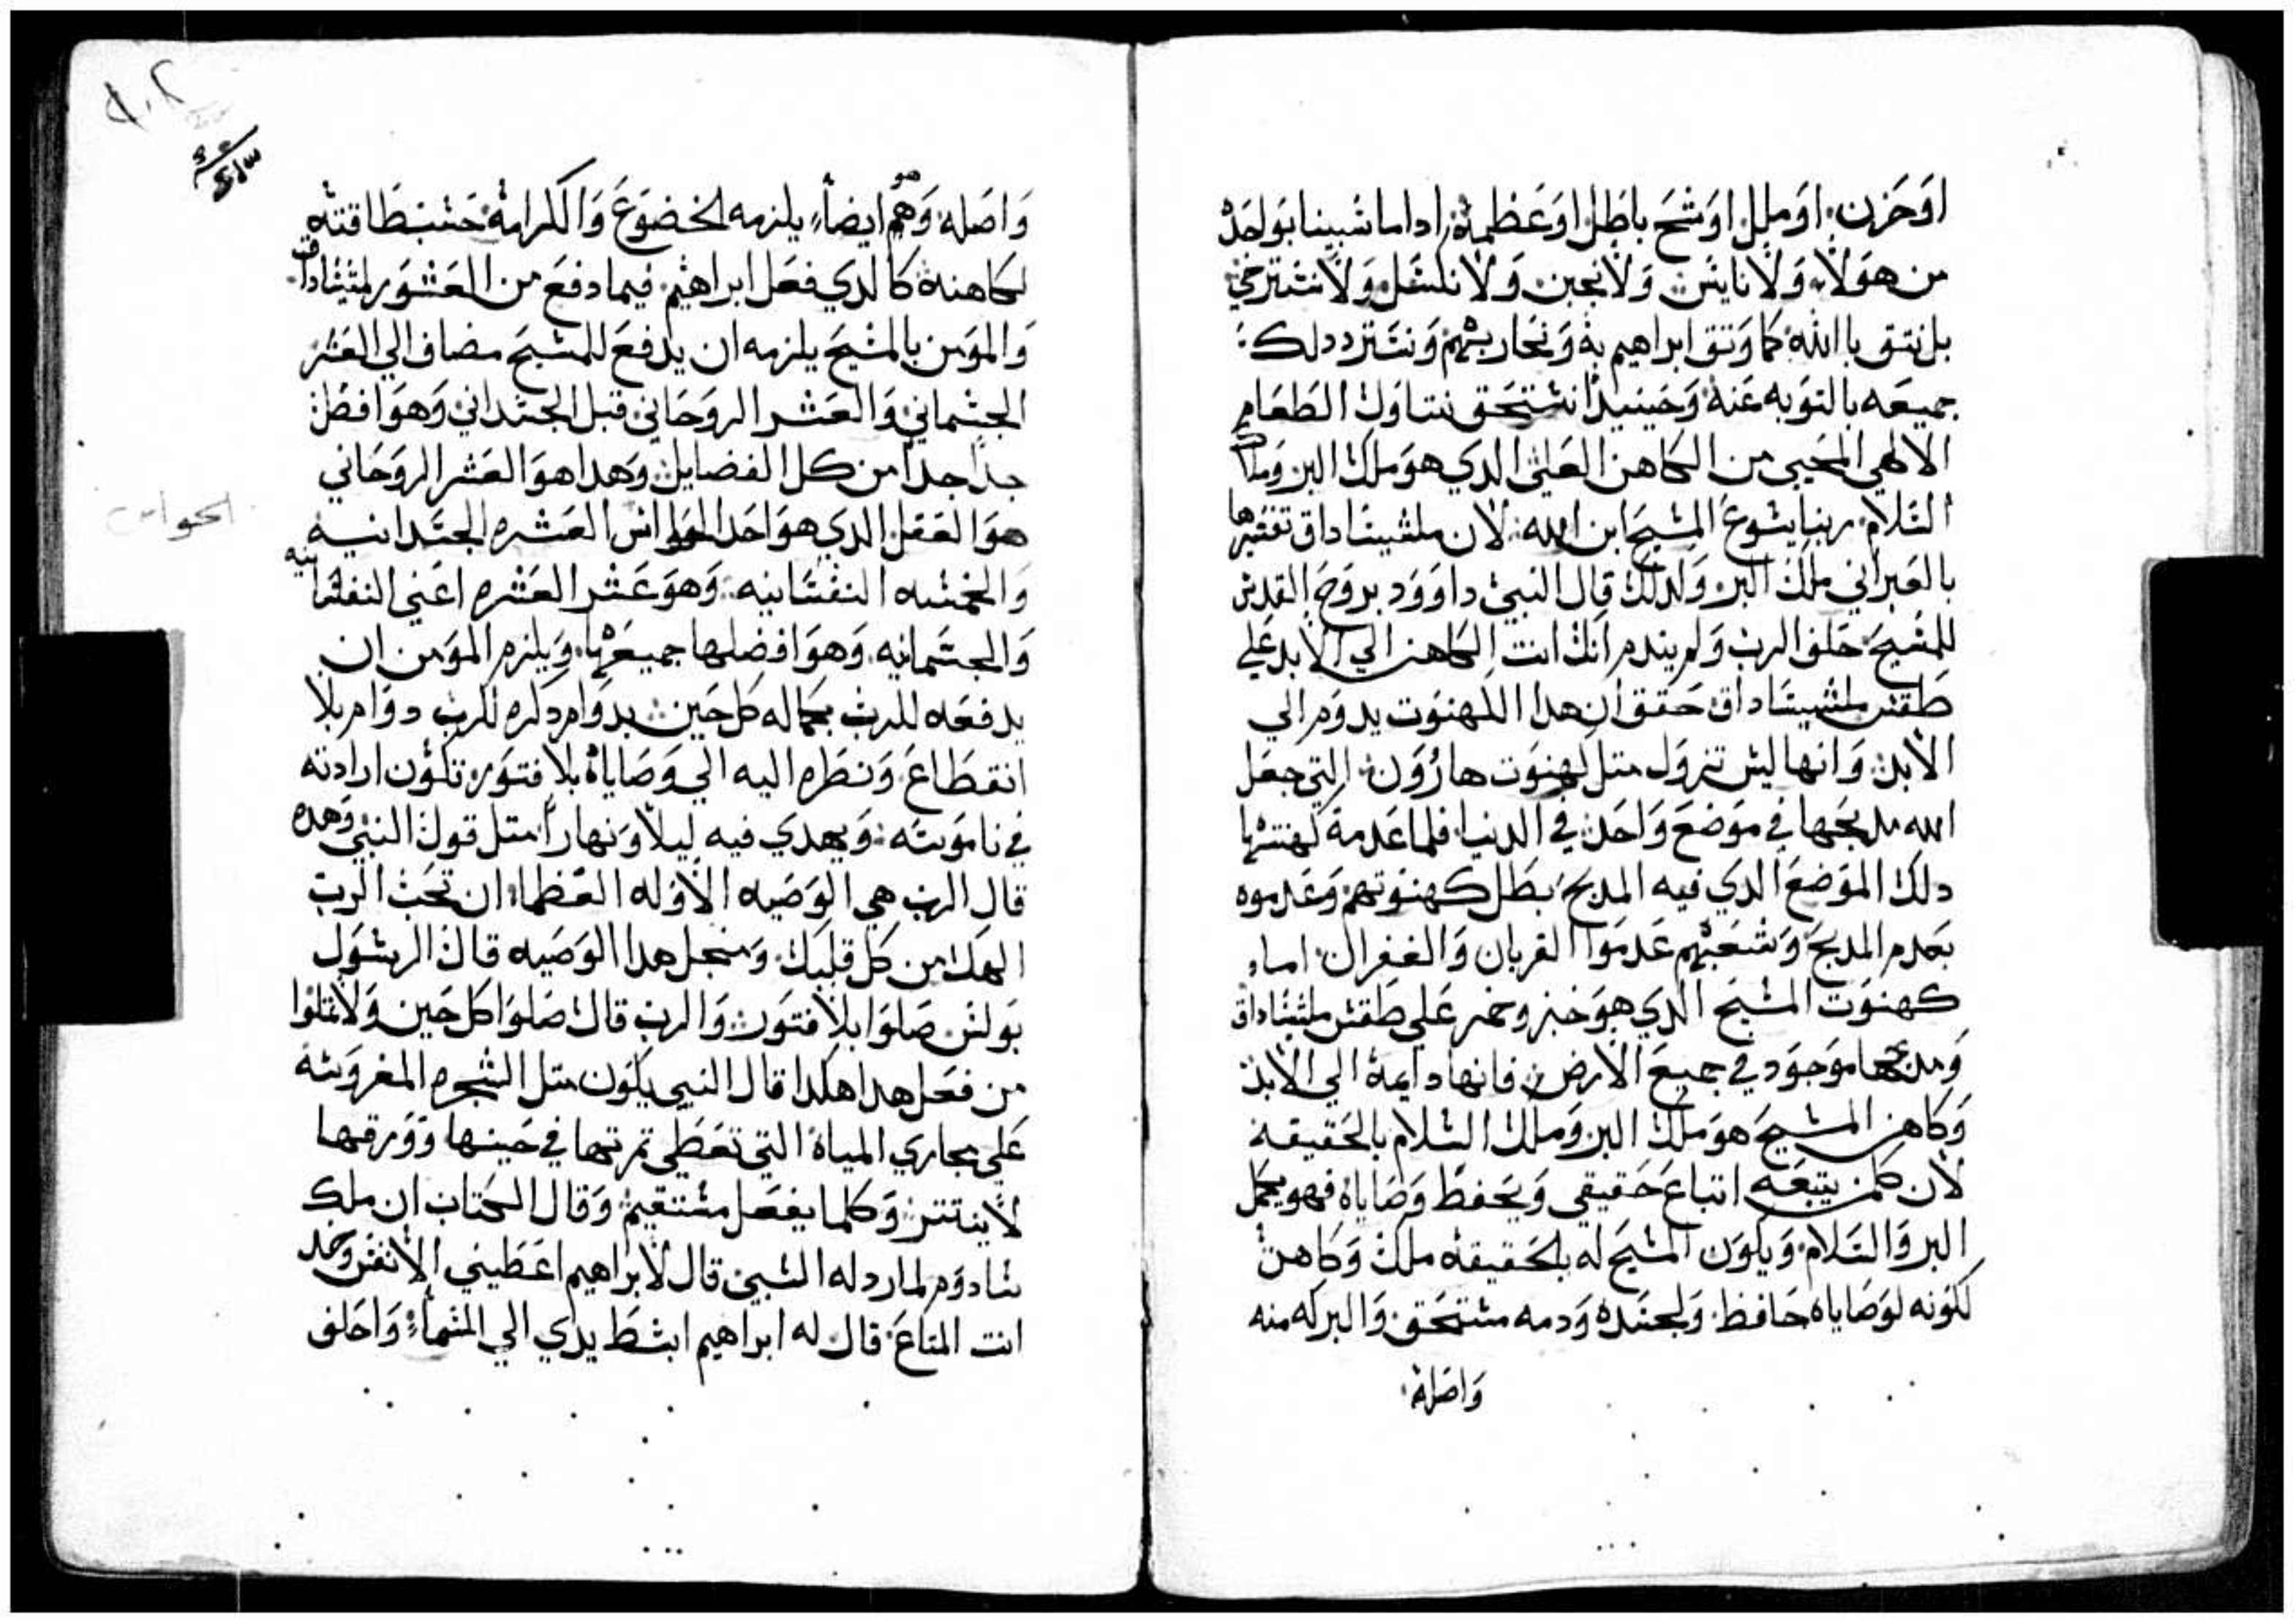 اوحزن. اوملل اوسبح باطل اوعظمة اداما سبينا بواحد
من هولاء ولا ناين ولا نجبن ولا نكسل ولا نسترخي
بل نتق باالله كما وتق ابراهيم به ونحاربهم ونسترد دلك
جميعه بالتوبه عنه وحينيد انستحق نتناول الطعام
الالهي المحيي من الكاهن العلي الدي هو ملك البر وملك
السلام ربنا يسوع المسيح ابن الله لان ملشيساداق تفسيرها
بالعبراني ملك البر ولدلك قال النبي داوود بروح القدس
للمسيح حلف الرب ولم يندم انك انت الكاهن الي الابد علي
طقس ملشيساداق حقق ان هدا الكهنوت يدوم الي
الابد وانها ليس تزول متل كهنوت هارون التي جعل
الله مدبحها في موضع واحد في الدنيا فلما عدمة كهنتها
دلك الموضع الدي فيه المدبح بطل كهنوتهم وعدموه
بعدم المدبح وشعبهم عدموا القربان والغفران اما
كهنوت المسيح الدي هو خبز وخمر علي طقس ملشيساداق
ومدبحها موجود في جميع الارض فانها دايمة الي الابد
وكاهن المسيح هو ملك البر وملك السلام بالحقيقة
لان كلمن يتبعه اتباع حقيقي ويحفظ وصاياه فهو يكمل
البر والسلام ويكون المسيح له بلحقيقه ملك وكاهن
لكونه لوصاياه حافظ ولجسده ودمه مستحق والبركه منه
واصلة
واصله وهو ايضاً يلزمه الخضوع واالكرامة حسب طاقته
لكاهنة كالدي فعل ابراهيم فيما دفع من العشور لمشيساداق
والمومن بالمسيح يلزمه ان يدفع للمسيح مضاف الي العشر
الجسماني والعشر الروحاني قبل الجسداني وهو افضل
جداً جداً من كل الفضايل وهدا هو العشر الروحاني
هو العقل الدي هو احد الحواس العشره الجسدانيه
الحواس
والخمسه النفسانيه وهو عشر العشره اعني النفسانيه
والجسمانيه وهو افضلها جميعها ويلزم المومن ان
يدفعه للرب بكماله كل حين بدوام دكره للرب دوام بلا
انقطاع ونظره اليه الي وصاياه بلا فتور تكون ارادته
في ناموسه ويهدي فيه ليلاً ونهاراً متل قول النبي وهده
قال الرب هي الوصيه الاوله العظما ان تحب الرب
الهك من كل قلبك ومنجل هدا الوصيه قال الرسول
بولس صلوا بلا فتور والرب قال صلوا كل حين ولا تملوا
من فعل هدا هكدا قال النبي يكون متل الشجره المغروسة
علي مجاري المياة التي تعطي تمرتها في حينها وورقها
لا ينتتر وكلما يفعل مستقيم وقال الكتاب ان ملك
سادوم لما رد له السبي قال لابراهيم اعطيني الانفس وخد
انت المتاع قال له ابراهيم ابسط يدي الي السما واحلف